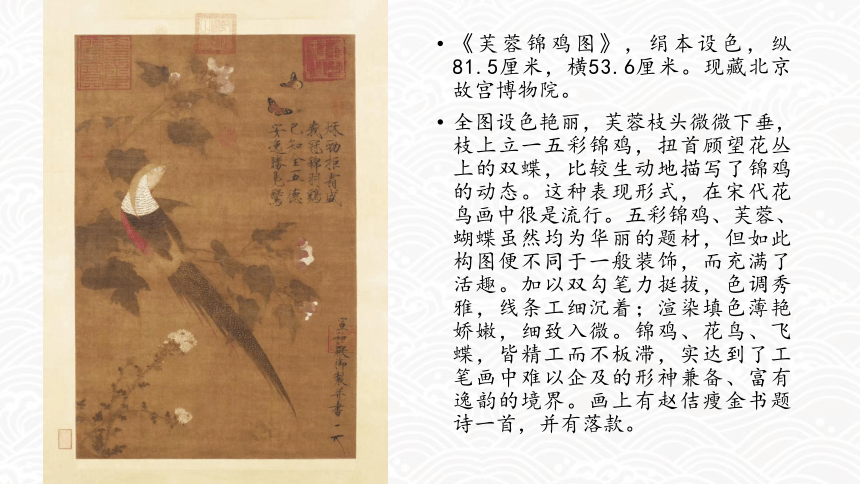 秋勁拒霜盛
峩冠錦羽雞
已知全五德
安逸勝鳧鷖
宣和殿御製并書
• 《芙蓉锦鸡图》，绢本设色，纵
81.5厘米，横53.6厘米。现藏北京
故宫博物院。
• 全图设色艳丽，芙蓉枝头微微下垂，
枝上立一五彩锦鸡，扭首顾望花丛
上的双蝶，比较生动地描写了锦鸡
的动态。这种表现形式，在宋代花
鸟画中很是流行。五彩锦鸡、芙蓉、
蝴蝶虽然均为华丽的题材，但如此
构图便不同于一般装饰，而充满了
活趣。加以双勾笔力挺拔，色调秀
雅，线条工细沉着；渲染填色薄艳
娇嫩，细致入微。锦鸡、花鸟、飞
蝶，皆精工而不板滞，实达到了工
笔画中难以企及的形神兼备、富有
逸韵的境界。画上有赵佶瘦金书题
诗一首，并有落款。